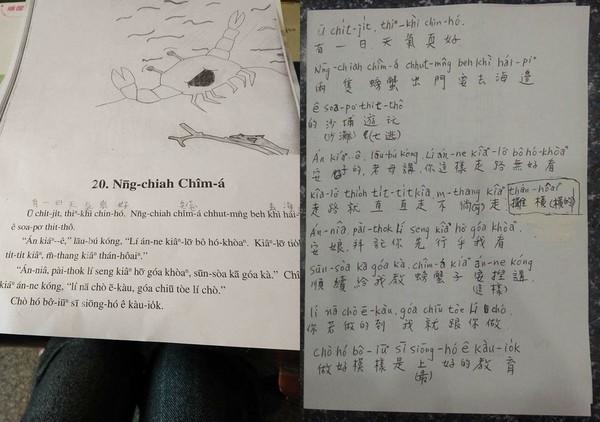 20. Nn̄g-chiah Chîm-á
有一日天氣真好
Ū chi̍t-ji̍t, thiⁿ-khì chin-hó. Nn̄g-chiah chîm-á chhut-mn̂g beh khì hái-
ê soa-po͘ thit-thô.
“Án kiâⁿ--ê,” lāu-bú kóng, “Lí án-ne kiâⁿ-lō͘ bô hó-khòaⁿ. Kiâⁿ-lō͘ tio̍
ti̍t-ti̍t kiâⁿ, m̄-thang kiâⁿ thán-hôaiⁿ.”
“An-niâ, pài-thok lí seng kiâⁿ hō͘ góa khòaⁿ, sūn-sòa kā góa kà.” Chî
kiâⁿ án-ne kóng, “lí nā chò ē-kàu, góa chiū tòe lí chò.”
Chò hó bô͘-iūⁿ sī siōng-hó ê kàu-io̍k.
Ū chi̍t-ji̍t, thiⁿ-khì chin-hó.
有一日天氣真好
Nn̄g-chiah chîm-á chhut-mn̂g beh khì hái-piⁿ
兩隻螃蟹出門要去海邊
ê soa-po͘ thit-thô
的沙埔遊玩
(沙灘) (七逃)
Án kiâⁿ-ê, lāu-bú kóng, Lí án-ne kiâⁿ-lō͘ bô hó-khòaⁿ
的,老母講,你這樣走路無好看
kiâ-lō͘ ti̍t-ti̍t kiâ m-thang kiâⁿ thán-hôaiⁿ
走路就直直走不倘走
An-niâ, pài-thok lí seng kiâⁿ hō͘ góa khòaⁿ
安娘,拜託你先行乎我看
sūn-sòa kā góa kà. chîm-á kiâⁿ án-ne kóng
順續給我教螃蟹子講
(這樣)
lí nā chò ē-kàu, góa chiū tòe lí chò.
你若做的到 我就跟你做
Chò hó bô͘-iūⁿ sī siōng-hó ê kàu-io̍k
做好模樣是上好的教育
(最)